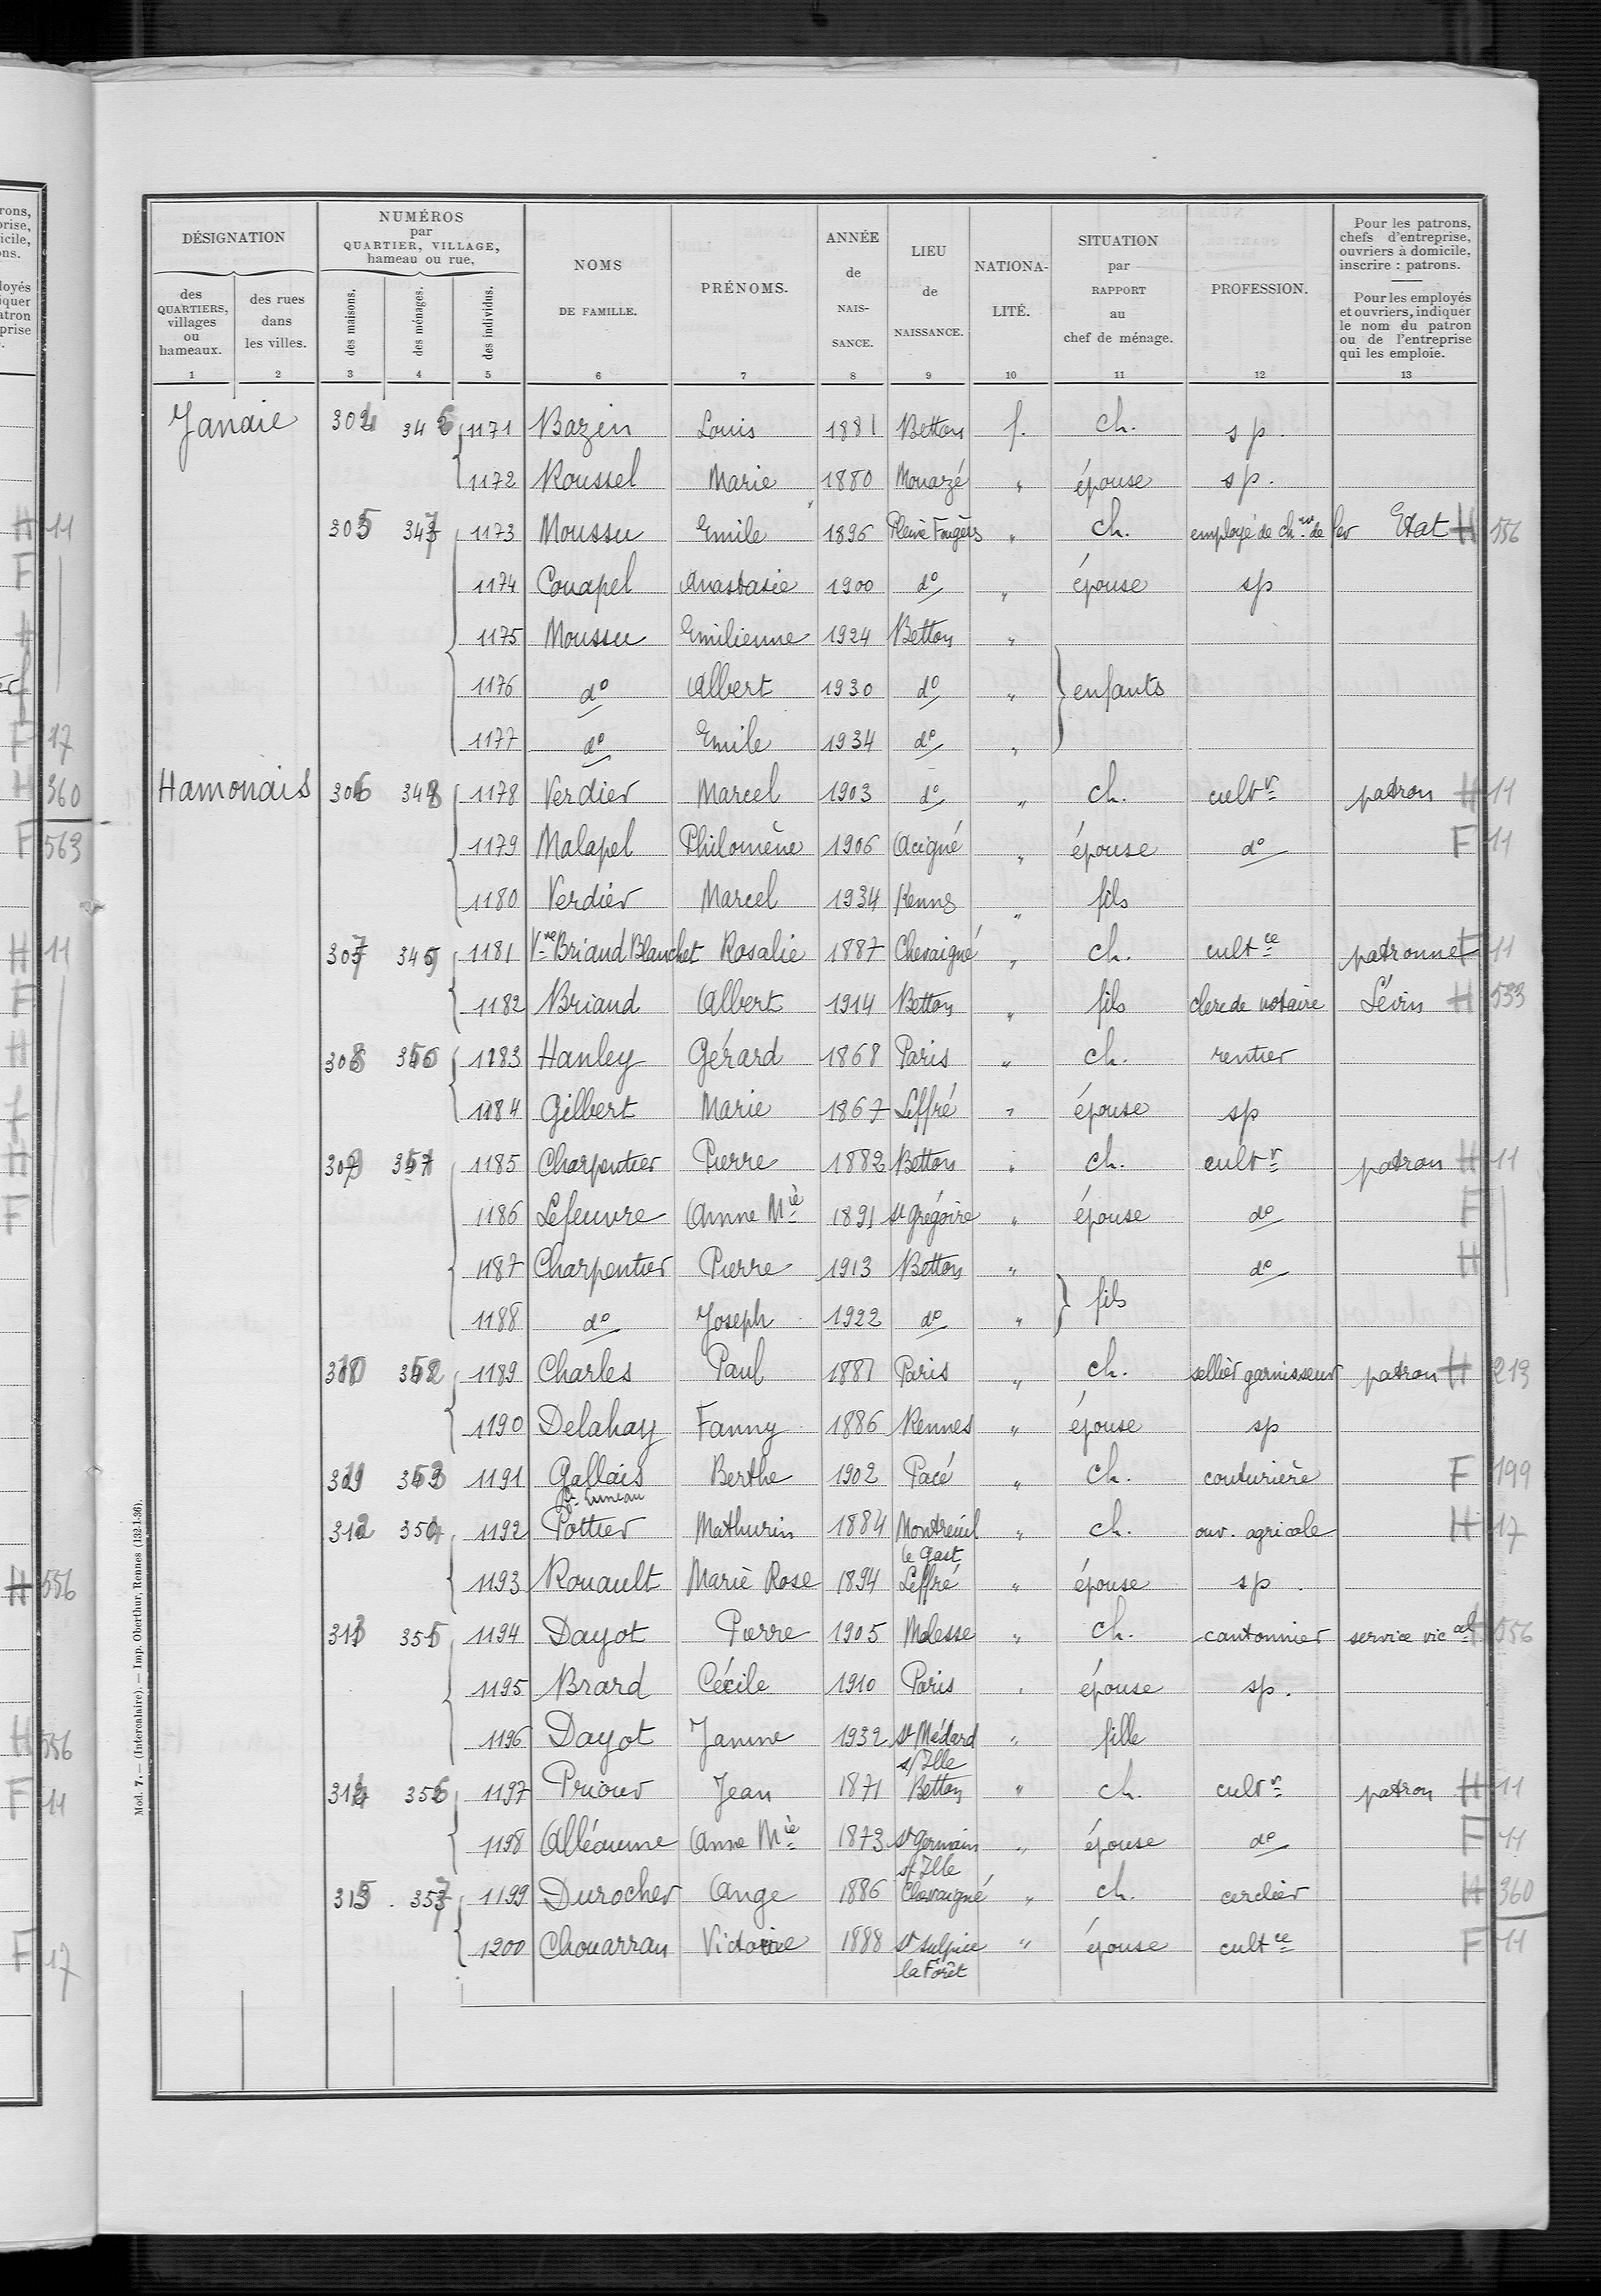 DÉSIGNATION
des QUARTIERS, villages ou hameaux.
des rues dans les villes.
NUMÉROS par QUARTIER, VILLAGE, hameau ou rue.
des maisons.
des ménages.
des individus.
NOMS DE FAMILLE.
PRÉNOMS.
ANNÉE de NAIS-SANCE.
LIEU de NAISSANCE.
NATIONA-LITÉ.
SITUATION par RAPPORT au chef de ménage.
PROFESSION.
Pour les patrons, chefs d'entreprise, ouvriers à domicile, inscrire : patrons.
Pour les employés et ouvriers, indiquer le nom du patron ou de l'entreprise qui les emploie.
1 2 3 4 5 6 7 8 9 10 11 12 13
Janaie 304 346 1171 Bazin Louis 1881 Betton f. ch. sp.
1172 Roussel Marie 1880 Mouazé " épouse sp.
305 347 1173 Moussu Emile 1896 Pleine Fougères " ch. employé de ch. de fer Etat H 556
1174 Couapel Anastasie 1900 do " épouse sp
1175 Moussu Emilienne 1924 Betton "
1176 do Albert 1930 do " enfants
1177 do Emile 1934 do "
Hamonais 306 348 1178 Verdier Marcel 1903 do " ch. cultr patron H 11
1179 Malapel Philomène 1906 Acigné " épouse do F 11
1180 Verdier Marcel 1934 Rennes " fils
307 349 1181 Vve Briand Blanchet Rosalie 1887 Chevaigné " ch. cultce patronne F 11
1182 Briand Albert 1914 Betton " fils clerc de notaire Lévin H 533
308 350 1183 Hanley Gérard 1868 Paris " ch. rentier
1184 Gilbert Marie 1867 Liffré " épouse sp
309 351 1185 Charpentier Pierre 1882 Betton " ch. cultr patron H 11
1186 Lefeuvre Anne Mie 1891 St Grégoire " épouse do F
1187 Charpentier Pierre 1913 Betton " do H
fils
1188 do Joseph 1922 do "
310 352 1189 Charles Paul 1881 Paris " ch. sellier garnisseur patron H 213
1190 Delahay Fanny 1886 Rennes " épouse sp
311 353 1191 Gallais Berthe 1902 Pacé " ch. couturière F 199
312 354 1192 Pottier Mathurin 1884 Montreuil le Gast " ch. ouv. agricole H 17
1193 Rouault Marie Rose 1894 Liffré " épouse sp.
313 355 1194 Dayot Pierre 1905 Melesse " ch. cantonnier service vical H 556
1195 Brard Cécile 1910 Paris " épouse sp.
1196 Dayot Janine 1932 St Médard s/Ille " fille
314 356 1197 Priour Jean 1871 Betton " ch. cultr patron H 11
1198 Alléaume Anne Mie 1873 St Germain s/ Ille " épouse do F 11
315 357 1199 Durocher Ange 1886 Chevaigné " ch. cerclier H 360
1200 Chouarran Victorine 1888 St Sulpice la Forêt " épouse cultce F 11
Mod. 7. — (Intercalaire). — Imp. Oberthur, Rennes (132-1-36).
H 11
F
F 17
H 360
F 563
H 11
F
H
F
H 556
H 556
F 11
F 17